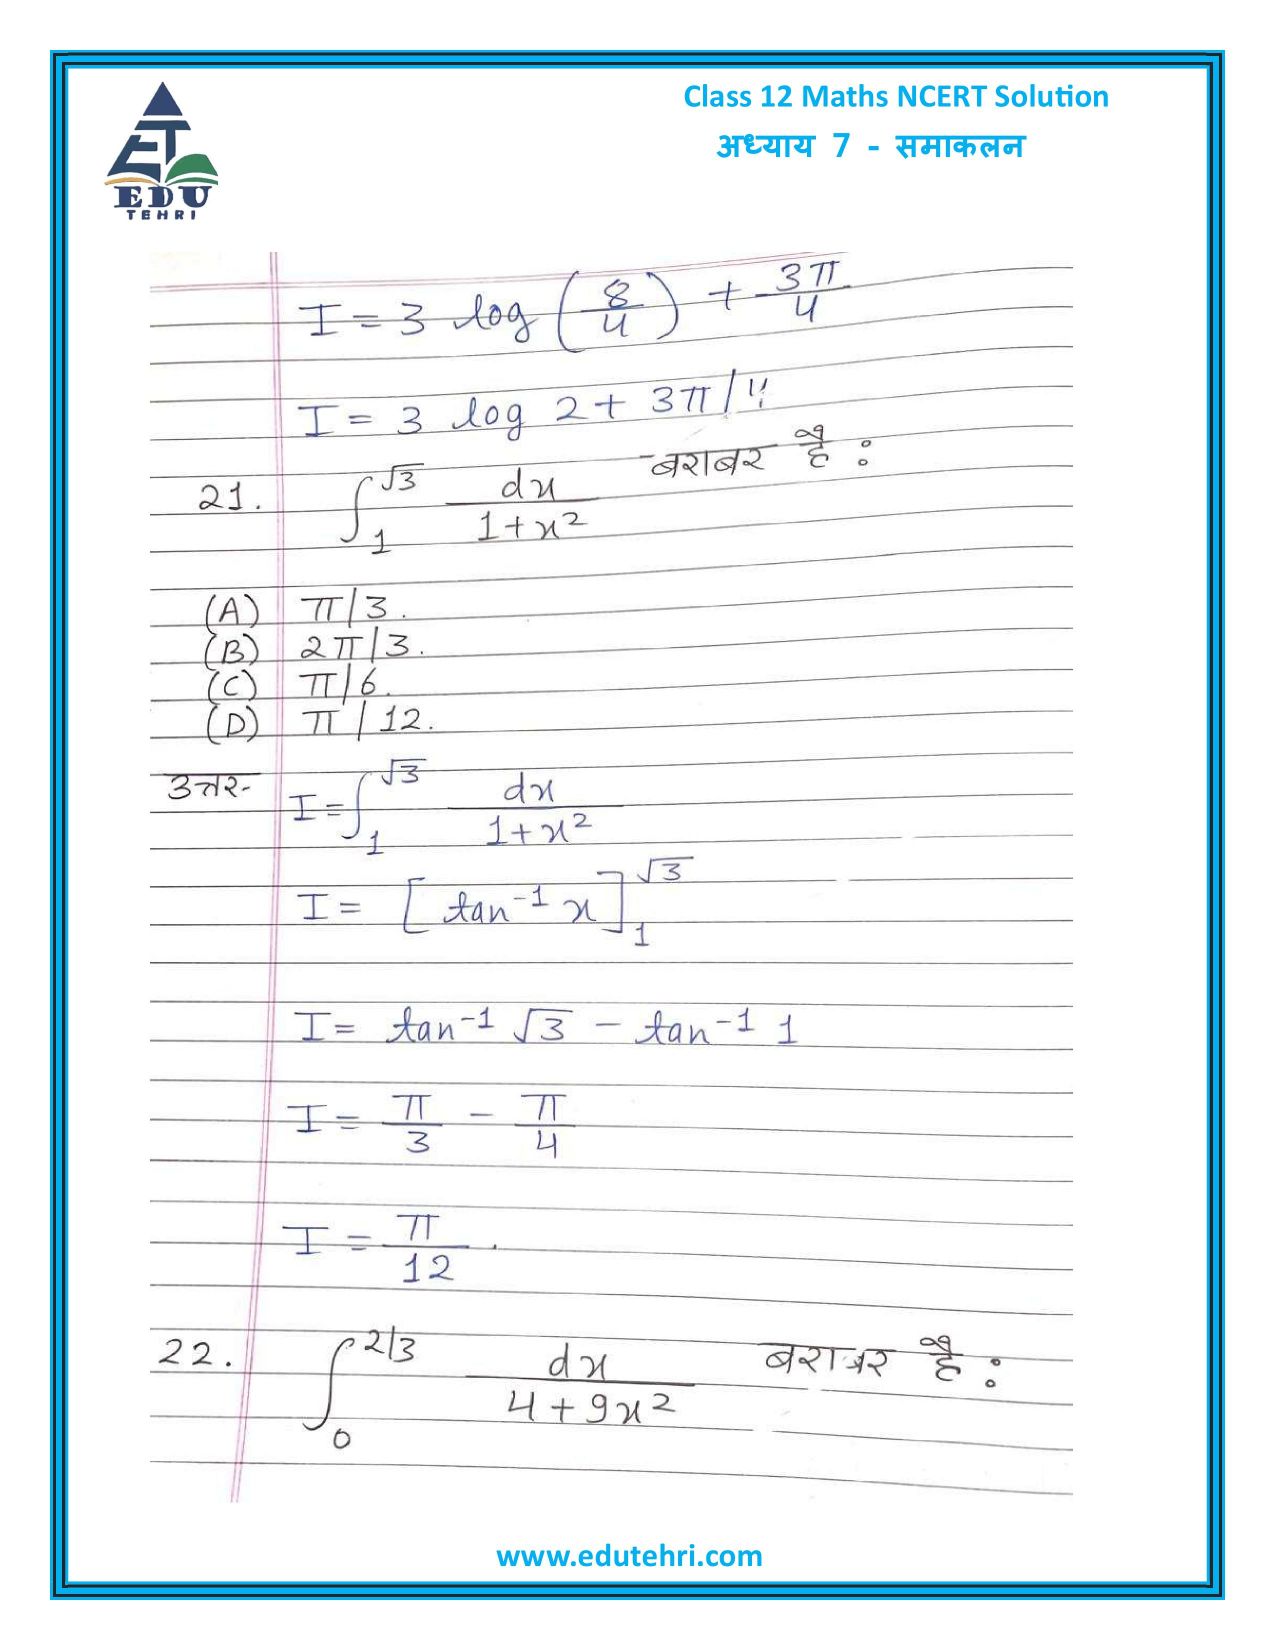 Class 12 Maths NCERT Solution
अध्याय 7 - समाकलन
EDU
TEHRI
I = 3 log (8/4) + 3π/4
I = 3 log 2 + 3π/4
21. ∫₁^√3 dx/(1+x²) बराबर है :
(A) π/3.
(B) 2π/3.
(C) π/6.
(D) π/12.
उत्तर- I = ∫₁^√3 dx/(1+x²)
I = [tan⁻¹ x]₁^√3
I = tan⁻¹ √3 − tan⁻¹ 1
I = π/3 − π/4
I = π/12.
22. ∫₀^2/3 dx/(4+9x²) बराबर है :
www.edutehri.com